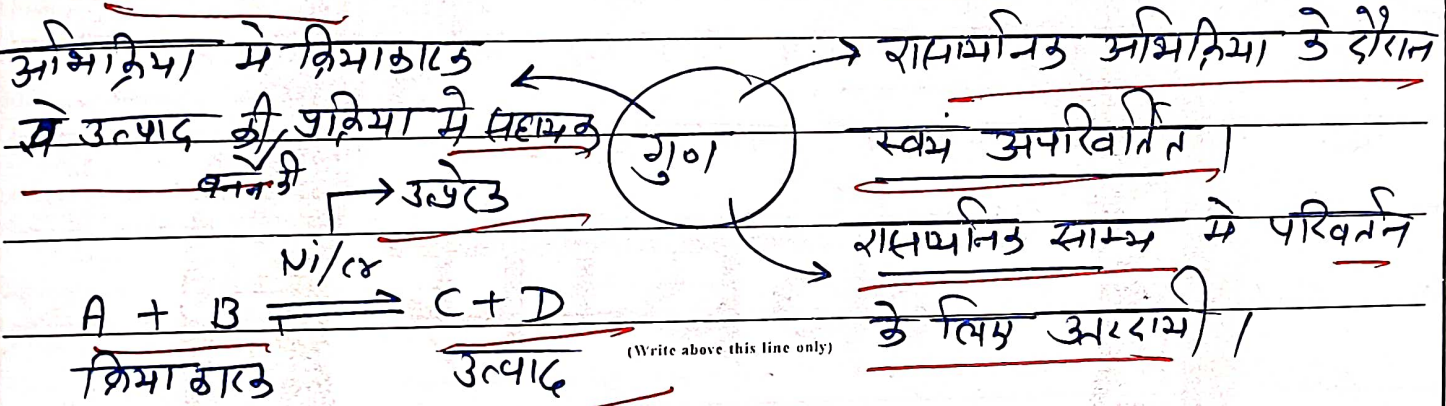 अभिक्रिया में क्रियाकारक
से उत्पाद की प्रक्रिया में सहायक
बनने की
गुण
रासायनिक अभिक्रिया के दौरान
स्वयं अपरिवर्तित।
रासायनिक साम्य में परिवर्तन
के लिए उत्तरदायी।
→ उत्प्रेरक
Ni/Cr
A + B ⇌ C + D
क्रियाकारक उत्पाद
(Write above this line only)